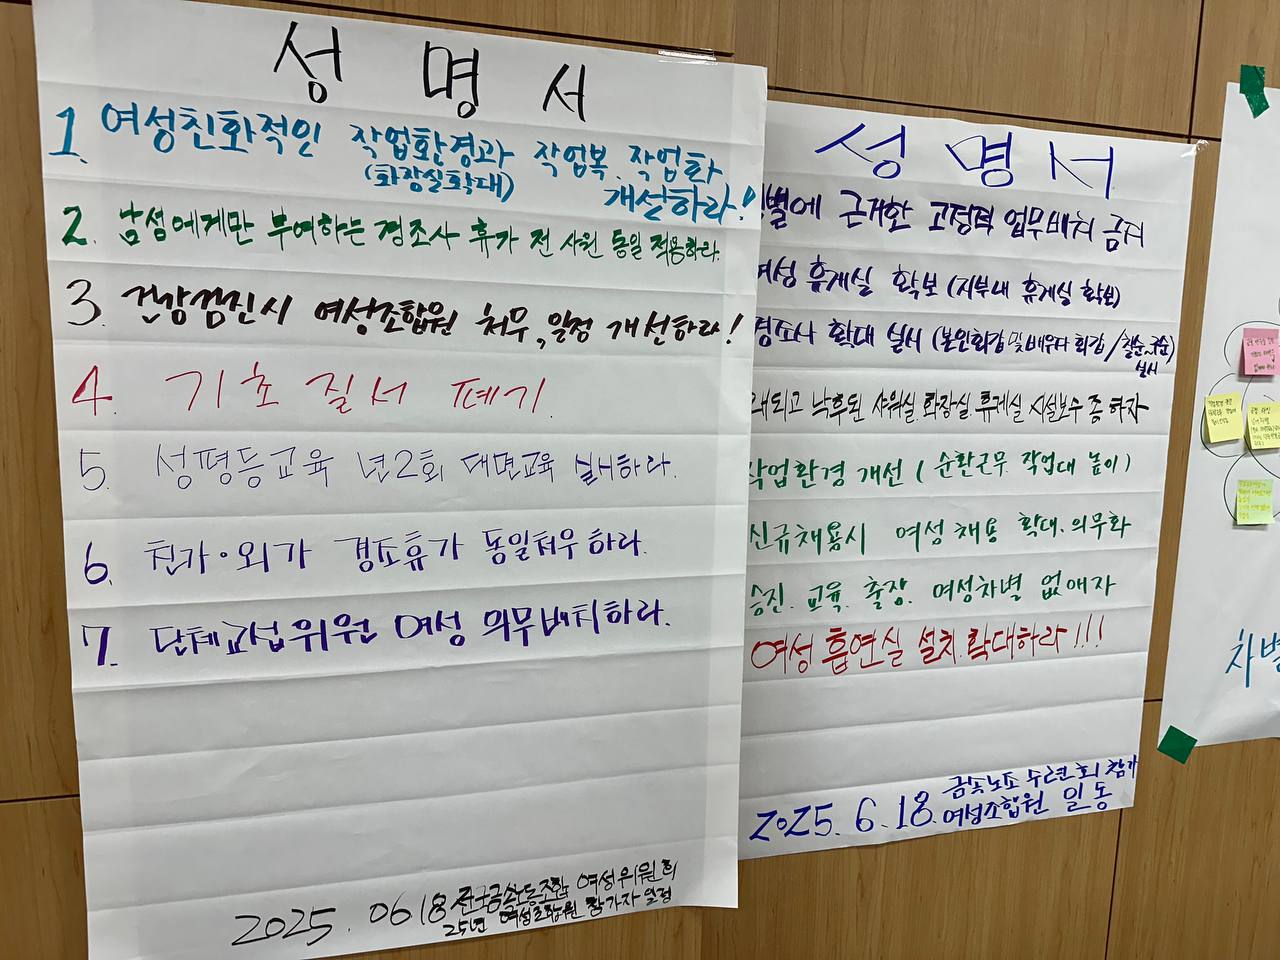 성명서
1. 여성친화적인 작업환경과 작업복.작업화
(화장실확대) 개선하라!
2. 남성에게만 부여하는 경조사 휴가 전 사원 동일 적용하라.
3. 건강검진시 여성조합원 처우, 일정 개선하라!
4. 기초질서 폐기
5. 성평등교육 년2회 대면교육 실시하라.
6. 친가·외가 경조휴가 동일처우하라.
7. 단체교섭위원 여성 의무배치하라.
2025. 06 18 전국금속노동조합 여성위원회
25년 여성조합원 참가자 일정
성명서
별에 근거한 고정적 업무배치 금지
여성 휴게실 확보 (지부내 휴게실 확보)
경조사 확대 실시 (본인회갑 및 배우자 회갑/칠순~구순)
실시
래되고 낙후된 샤워실.화장실.휴게실 시설보수 좀 하자
작업환경 개선 (순환근무 작업대 높이)
신규채용시 여성채용 확대.의무화
승진. 교육. 출장. 여성차별 없애자
여성 흡연실 설치.확대하라!!!
2025. 6. 18. 금속노조 수련회 참가
여성조합원 일동
차별